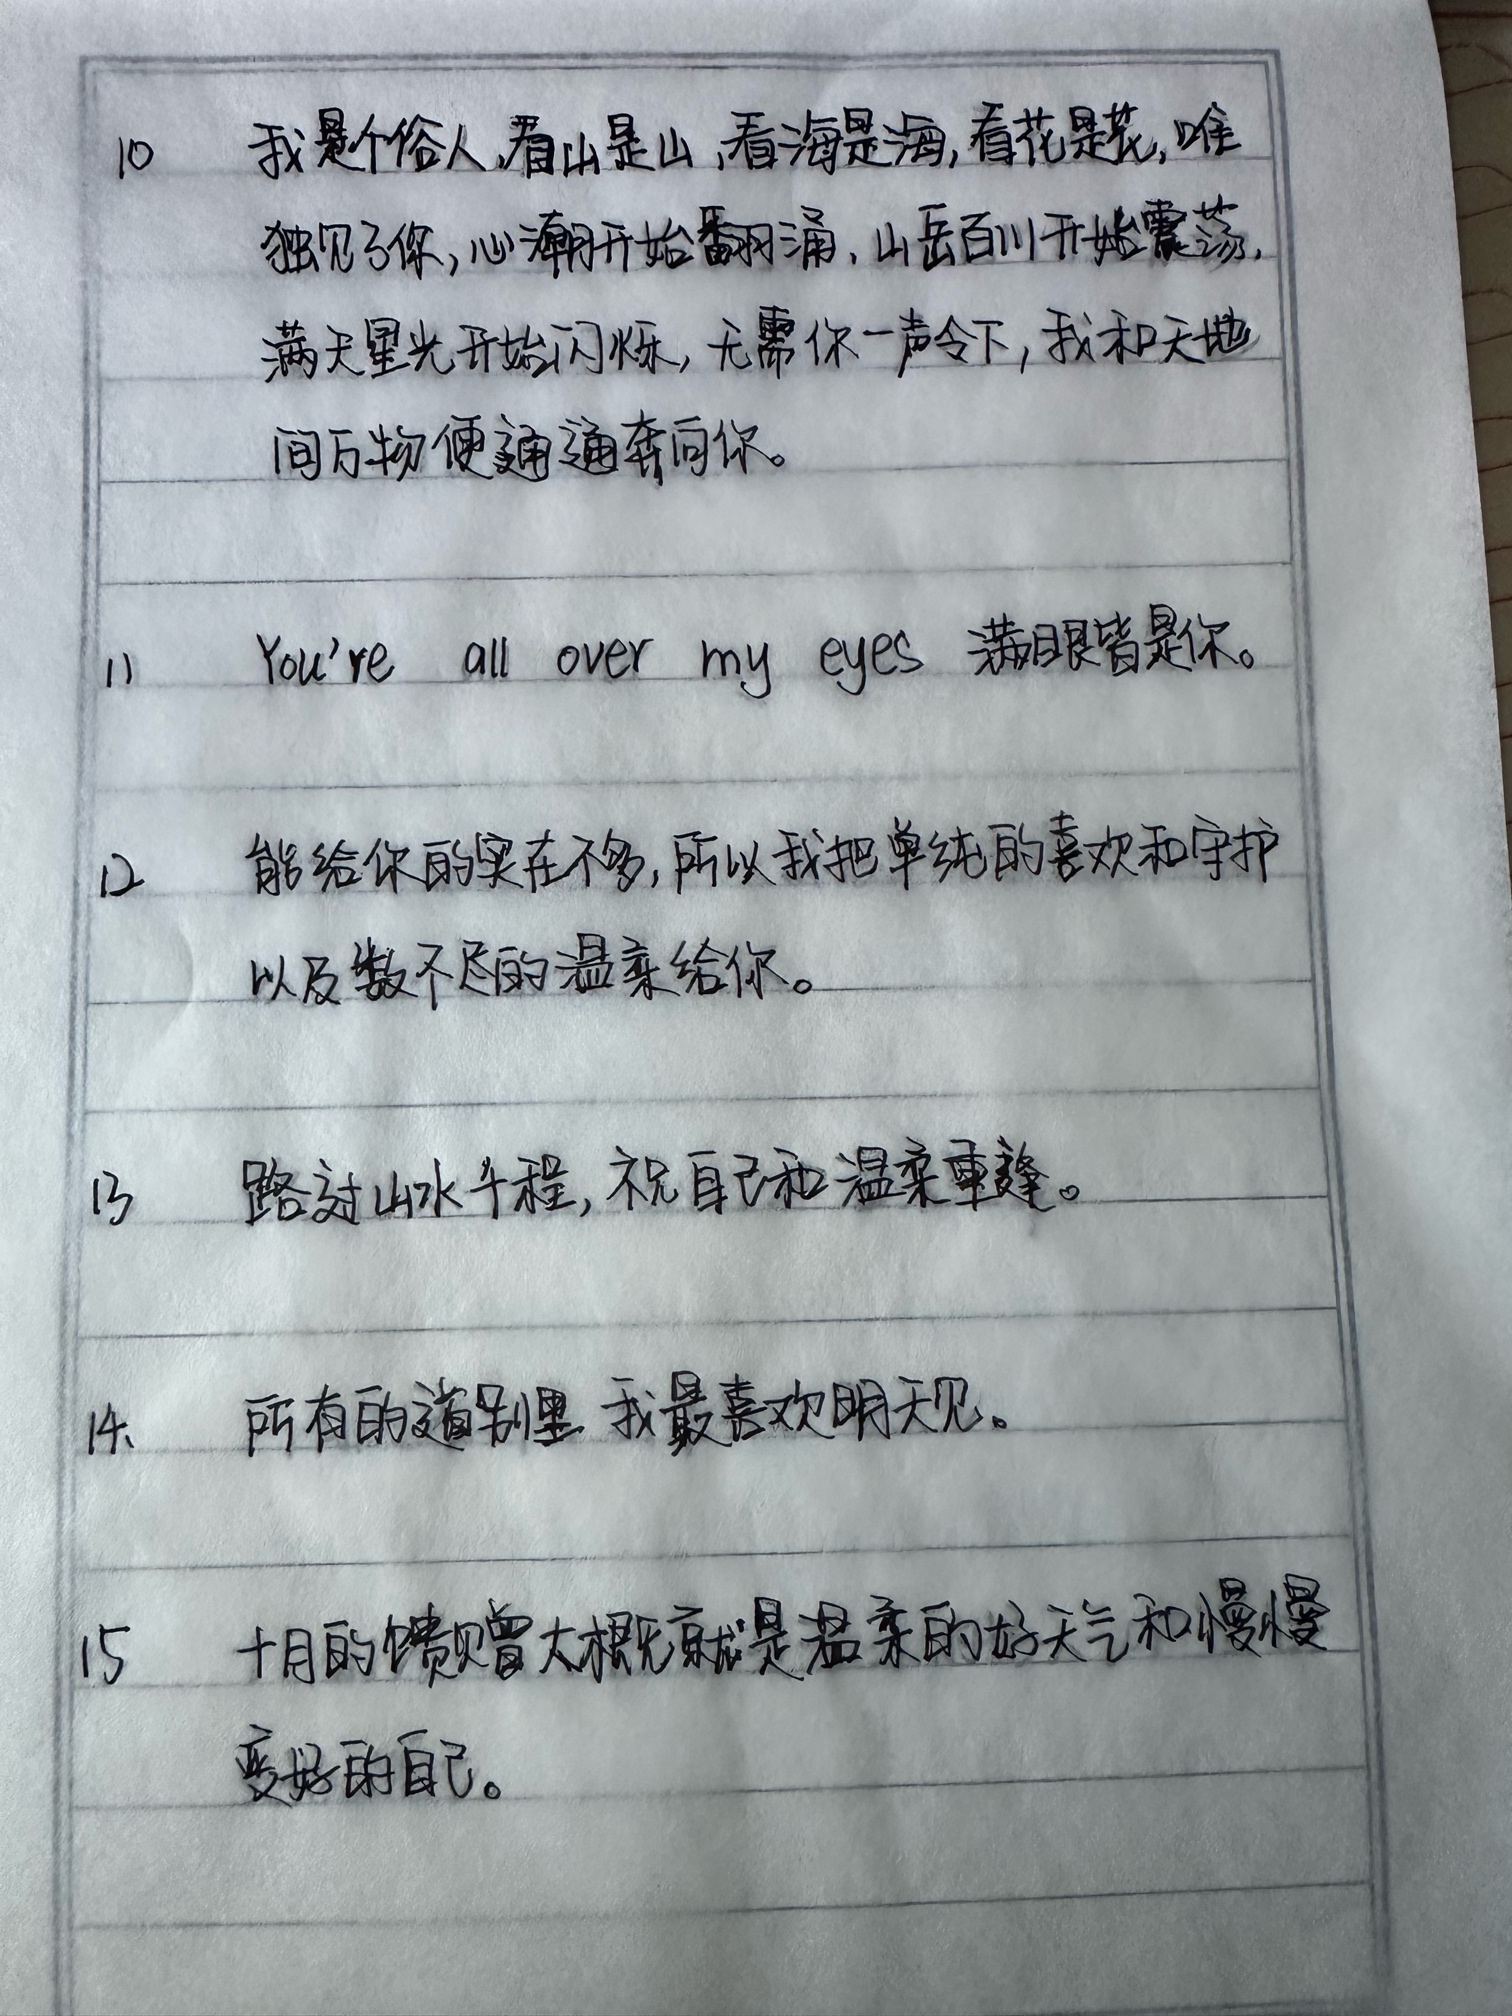 10 我是个俗人,看山是山,看海是海,看花是花,唯
独见了你,心潮开始翻涌,山岳百川开始震荡,
满天星光开始闪烁,无需你一声令下,我和天地
间万物便通通奔向你。
11 You're all over my eyes 满眼皆是你。
12 能给你的实在不多,所以我把单纯的喜欢和守护
以及数不尽的温柔给你。
13 路过山水千程,祝自己和温柔重逢。
14、 所有的道别里 我最喜欢明天见。
15 十月的馈赠大概就是温柔的好天气和慢慢
变好的自己。